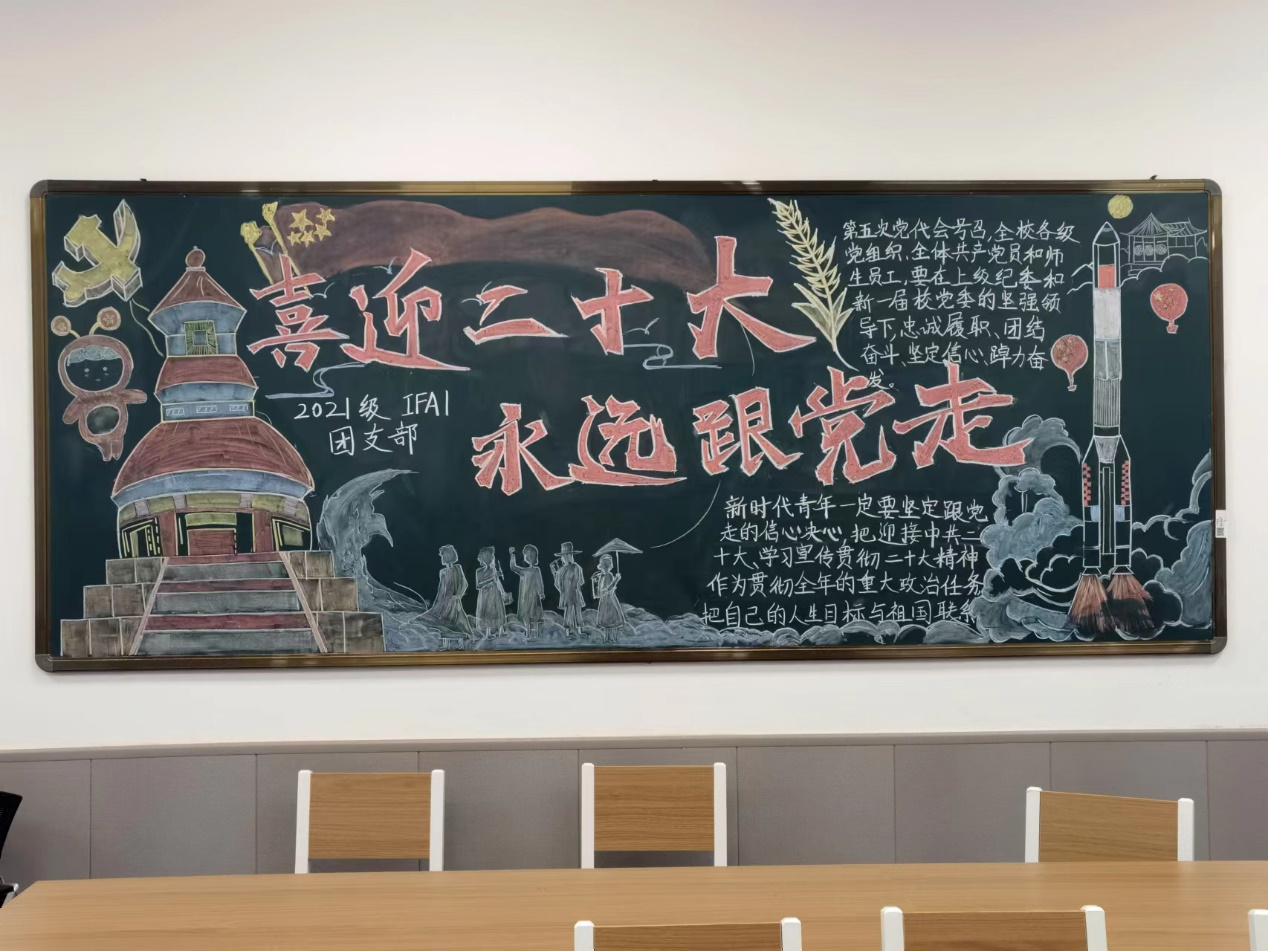 喜迎二十大
永远跟党走
2021级 IFAI
团支部
第五次党代会号召,全校各级
党组织、全体共产党员和师
生员工,要在上级纪委和
新一届校党委的坚强领
导下,忠诚履职、团结
奋斗、坚定信心、踔力奋
发。
新时代青年一定要坚定跟党
走的信心决心,把迎接中共二
十大、学习宣传贯彻二十大精神
作为贯彻全年的重大政治任务
把自己的人生目标与祖国联系